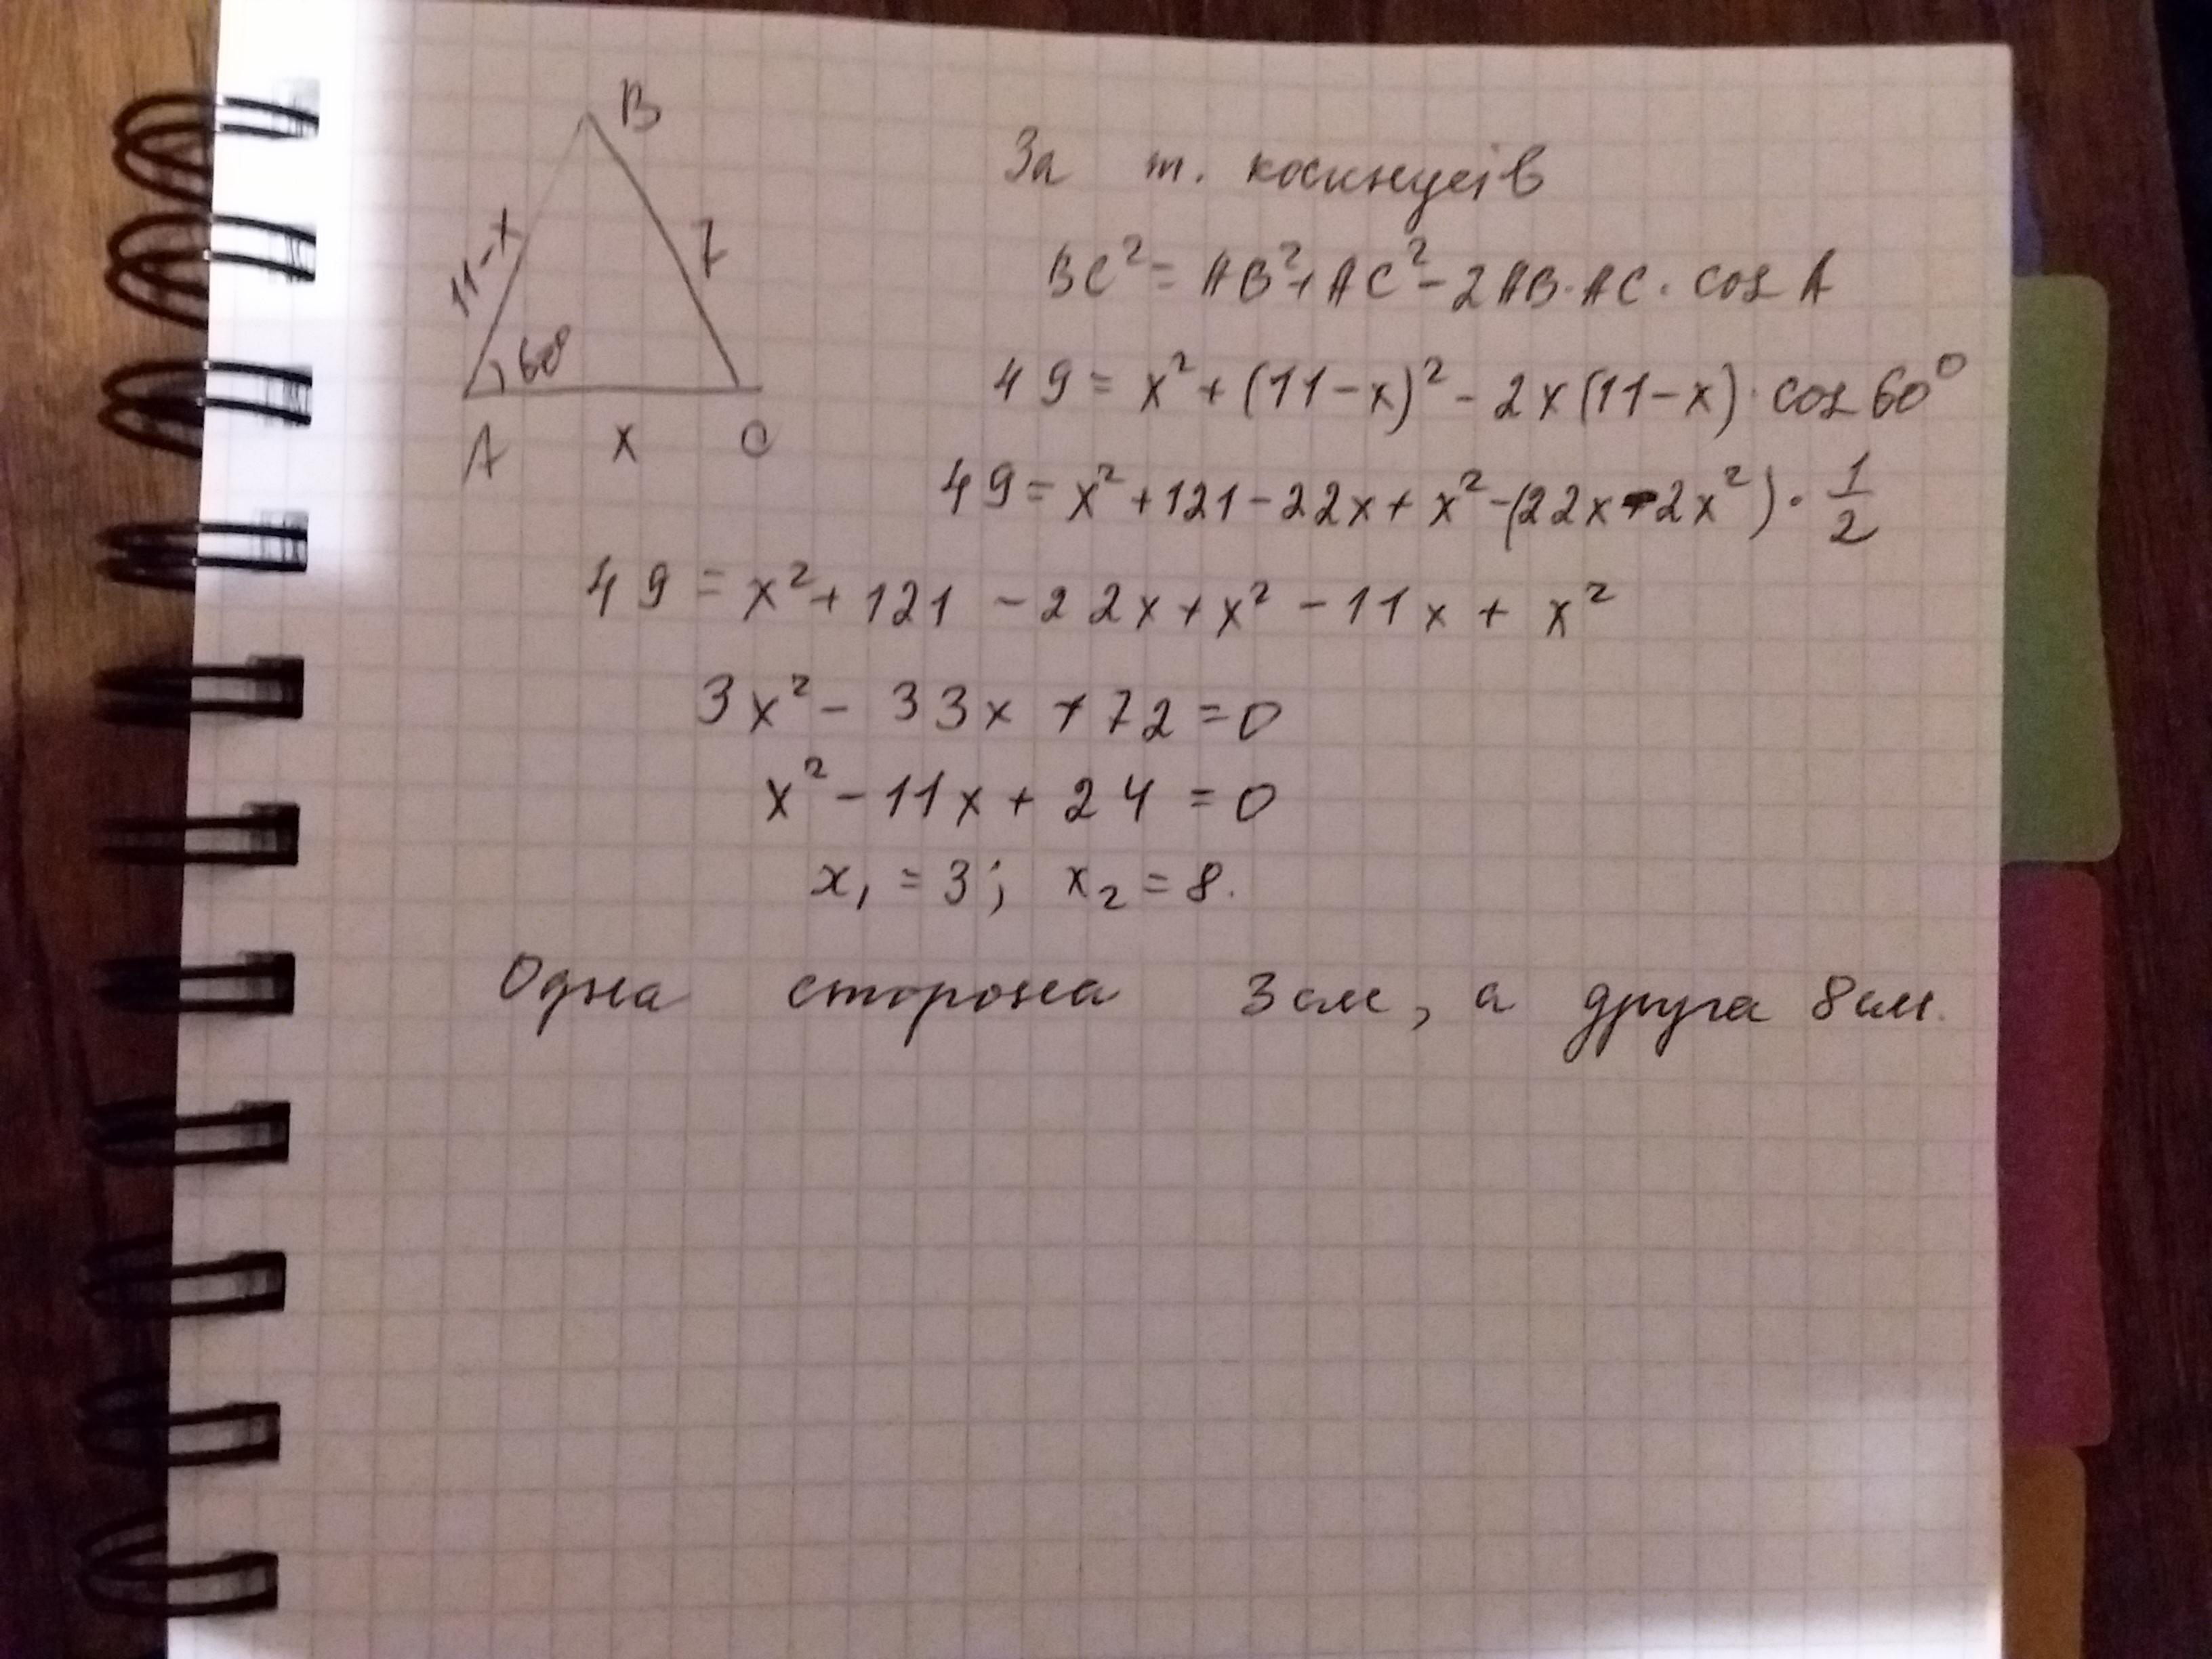 B
11-x
7
60°
A x C
За т. косинусів
BC² = AB² + AC² - 2AB·AC·cos A
49 = x² + (11-x)² - 2x(11-x)·cos 60°
49 = x² + 121 - 22x + x² - (22x - 2x²)·1/2
49 = x² + 121 - 22x + x² - 11x + x²
3x² - 33x + 72 = 0
x² - 11x + 24 = 0
x₁ = 3; x₂ = 8.
Одна сторона 3см, а друга 8см.